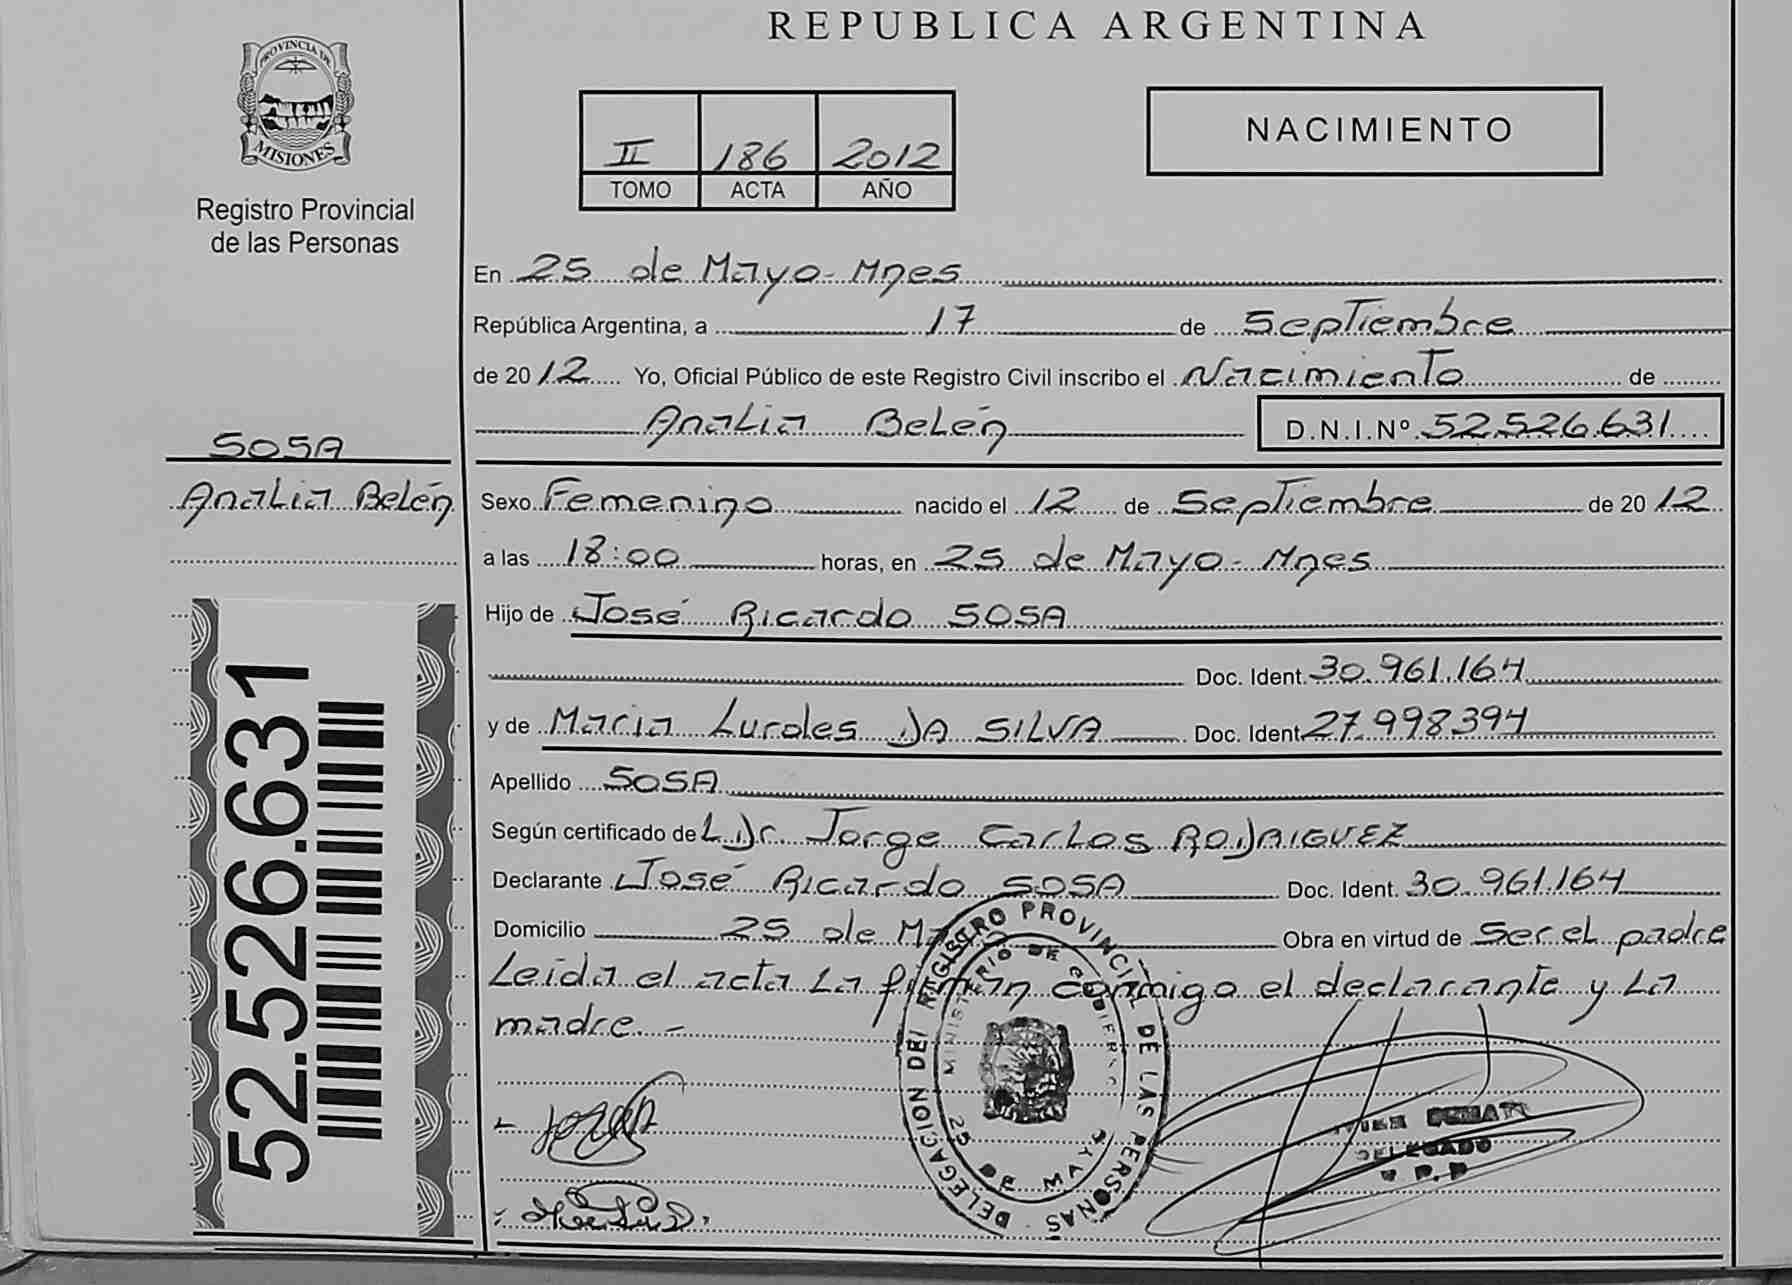 REPUBLICA ARGENTINA
PROVINCIA DE
MISIONES
Registro Provincial
de las Personas
II 186 2012
TOMO ACTA AÑO
NACIMIENTO
En 25 de Mayo - Mnes
República Argentina, a 17 de Septiembre
de 2012 Yo, Oficial Público de este Registro Civil inscribo el Nacimiento de
Analia Belén D.N.I.Nº 52.526.631
SOSA
Analia Belén
Sexo Femenino nacido el 12 de Septiembre de 2012
a las 18:00 horas, en 25 de Mayo - Mnes
Hijo de José Ricardo SOSA
Doc. Ident. 30.961.164
y de Maria Lurdes DA SILVA Doc. Ident. 27.998.394
Apellido SOSA
Según certificado del Dr. Jorge Carlos RODRIGUEZ
Declarante José Ricardo SOSA Doc. Ident. 30.961.164
Domicilio 25 de Mayo Obra en virtud de Ser el padre
Leida el acta La firman conmigo el declarante y La
madre. -
52.526.631
DELEGACION DEL REGISTRO PROVINCIAL DE LAS PERSONAS
MINISTERIO DE GOBIERNO
25 DE MAYO
DELEGADO